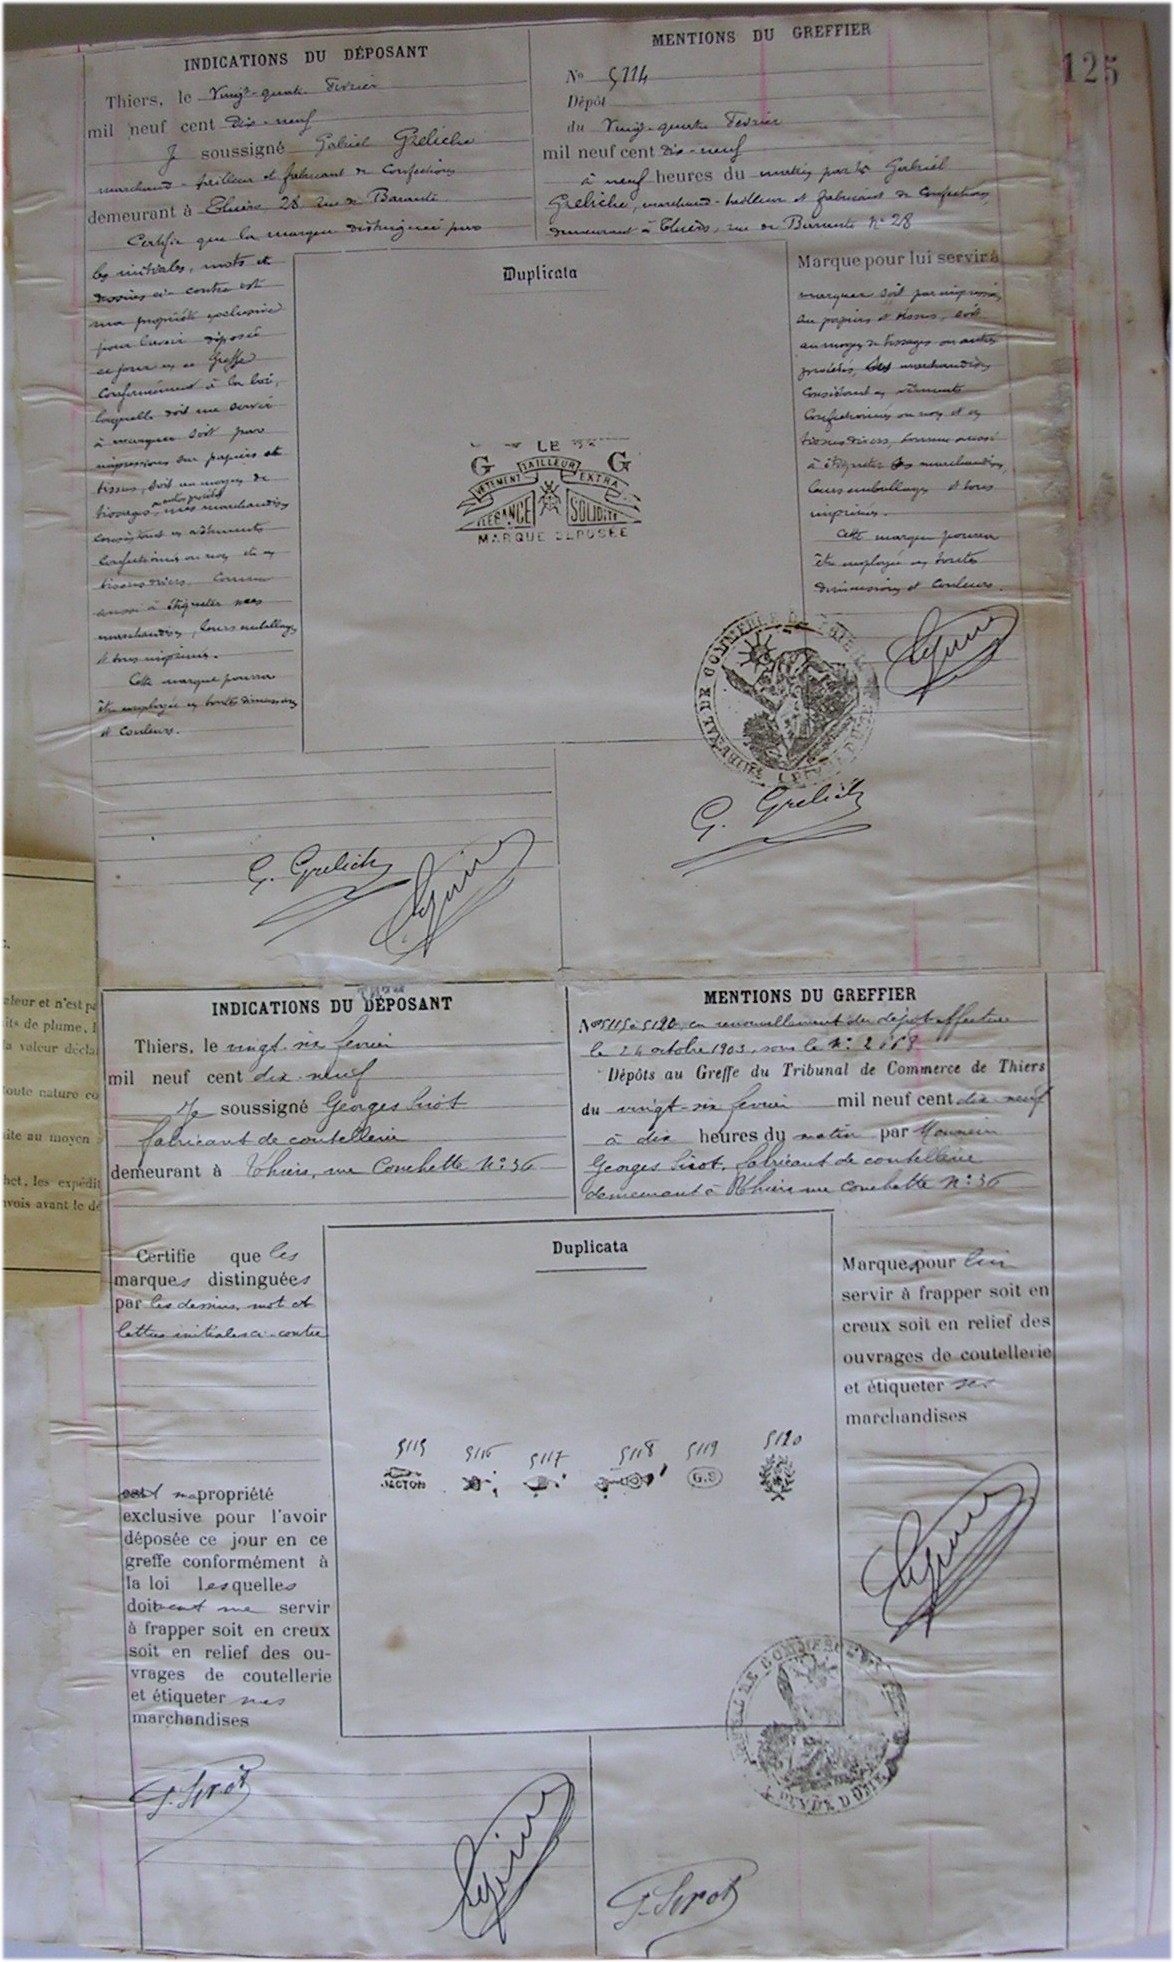 125
INDICATIONS DU DÉPOSANT
Thiers, le Vingt-quatre Fevrier
mil neuf cent Dix-neuf
Je soussigné Gabriel Greliche
marchand-tailleur et fabricant de Confections
demeurant à Thiers, 28 rue de Barante
Certifie que la marque distinguée par
les initiales, mots et
dessins ci-contre est
ma propriété exclusive
pour l'avoir déposée
ce jour en ce Greffe
conformément à la loi,
laquelle doit me servir
à marquer soit par
impressions sur papiers et
tissus, soit au moyen de
tissages, ou autres procédés mes marchandises
consistant en vêtements
confectionnés ou non et en
tissus divers, comme
aussi à étiqueter mes
marchandises, leurs emballages
et tous imprimés.
Cette marque pourra
être employée en toutes dimensions
et couleurs.
MENTIONS DU GREFFIER
No 5114
Dépôt
du Vingt-quatre Fevrier
mil neuf cent dix-neuf
à neuf heures du matin par Gabriel
Greliche, marchand-tailleur et fabricant de Confections,
demeurant à Thiers, rue de Barante No 28
Duplicata
LE
G TAILLEUR G
VÊTEMENT EXTRA
ÉLÉGANCE SOLIDITÉ
MARQUE DÉPOSÉE
Marque pour lui servir à
marquer soit par impressions
sur papiers et tissus, soit
au moyen de tissages ou autres
procédés, marchandises
consistant en vêtements
confectionnés ou non et en
tissus divers, comme aussi
à étiqueter ses marchandises,
leurs emballages et tous
imprimés.
Cette marque pourra
être employée en toutes
dimensions et couleurs.
TRIBUNAL DE COMMERCE DE THIERS
G. Greliche
G. Greliche
INDICATIONS DU DÉPOSANT
Thiers, le vingt-six fevrier
mil neuf cent dix-neuf
Je soussigné Georges Sirot
fabricant de coutellerie
demeurant à Thiers, rue Conchette No: 36
MENTIONS DU GREFFIER
Nos 5115 à 5120, en renouvellement du dépôt effectué
le 24 octobre 1903, sous le No:
Dépôts au Greffe du Tribunal de Commerce de Thiers
du vingt-six fevrier mil neuf cent dix neuf
à dix heures du matin par Monsieur
Georges Sirot, fabricant de coutellerie
demeurant à Thiers rue Conchette No: 36
Certifie que les
marques distinguées
par les dessins, mot et
lettres initiales ci-contre
Duplicata
5115 5116 5117 5118 5119 5120
G.S
sont ma propriété
exclusive pour l'avoir
déposée ce jour en ce
greffe conformément à
la loi lesquelles
doivent me servir
à frapper soit en creux
soit en relief des ou-
vrages de coutellerie
et étiqueter mes
marchandises
Marques pour lui
servir à frapper soit en
creux soit en relief des
ouvrages de coutellerie
et étiqueter ses
marchandises
PUY DE DÔME
G. Sirot
G. Sirot